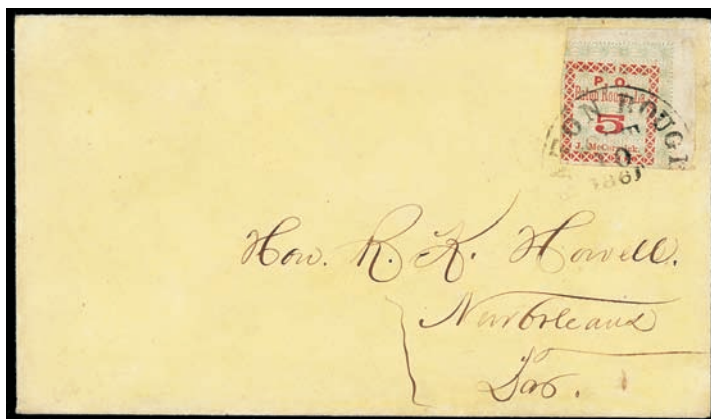 P. O.
Baton Rouge, La.
5
J. McCormick.
BATON ROUGE
1861
Hon. R. K. Howell.
New Orleans
La.